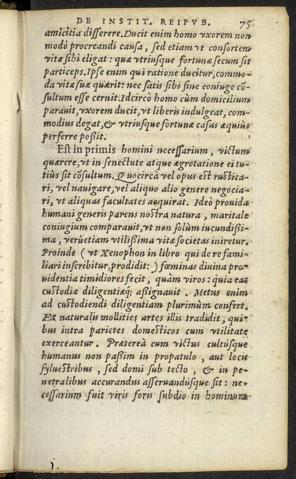 DE INSTIT. REIPVB. 75
amicitia disserere. Ducit enim homo vxorem non
modò procreandi causa, sed etiam vt consortem
vitæ sibi eligat: quæ vtriusque fortunæ secum sit
particeps. Ipse enim qui ratione ducitur, commo-
da vitæ suæ quærit: nec satis sibi sine coniuge cō-
sultum esse cernit. Idcircò homo cùm domicilium
parauit, vxorem ducit, vt liberis indulgeat, com-
modius degat, & vtriusque fortunæ casus æquius
perferre possit.
Est in primis homini necessarium, victum
quærere, vt in senectute atque ægrotatione ei tu-
tiùs sit cōsultum. Quocircà vel opus est rustica-
ri, vel nauigare, vel aliquo alio genere negocia-
ri, vt aliquas facultates acquirat. Ideò prouida
humani generis parens nostra natura, maritale
coniugium comparauit, vt non solùm iucundissi-
ma, verùetiam vtilissima vitæ societas iniretur.
Proinde (vt Xenophon in libro qui de re fami-
liari inscribitur, prodidit:) fœminas diuina pro-
uidentia timidiores fecit, quàm viros: quia eas
custodiæ diligentiæq; assignauit. Metus enim
ad custodiendi diligentiam plurimùm confert.
Ex naturalis mollities artes illis tradidit, qui-
bus intra parietes domesticos cum vtilitate
exerceantur. Prætereà cum victus cultusque
humanus non passim in propatulo, aut locis
syluestribus, sed domi sub tecto, & in pe-
netralibus accurandus asseruandusque sit: ne-
cessarium fuit viris foris subdio in hominum